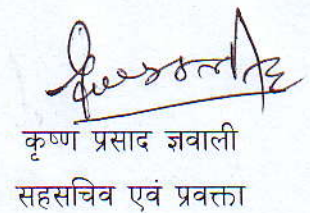 कृष्ण प्रसाद ज्ञवाली
सहसचिव एवं प्रवक्ता